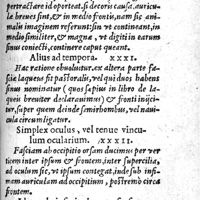 pertractare id oporteat, si decoris causa, auricu-
læ breues sint, & in medio frontis, nam sic ani-
malis imaginem referunt: sin vt contineant, in
medio similiter, & magnæ, vt digiti in earum
sinu coniecti, continere caput queant.
Alius ad tempora. XXXI.
Hac ratione obuoluitur. ex altera parte fa-
sciæ laqueus sit pastoralis, vel qui duos habens
sinus nominatur (quos sæpius in libro de la-
queis breuiter declarauimus) & fronti inijci-
tur, super quem deinde simirhombus, vel nau-
icula circumligatur.
Simplex oculus, vel tenue vincu-
lum ocularium. XXXII.
Fasciam ab occipitio orsam ducimus per ver
ticem inter ipsum & frontem, inter supercilia,
ad oculum sic, vt ipsum contegat, inde sub infi-
mam auriculam ad occipitium, postremò circa
frontem.